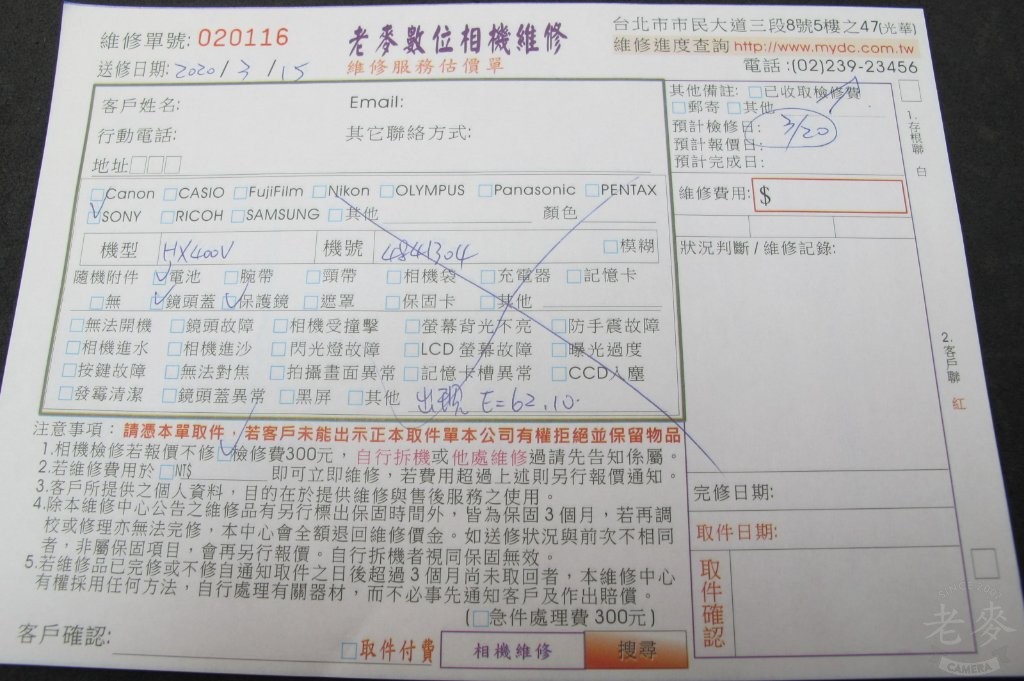 維修單號: 020116
老麥數位相機維修
維修服務估價單
台北市市民大道三段8號5樓之47(光華)
維修進度查詢 http://www.mydc.com.tw
電話:(02)239-23456
送修日期: 2020/3/15
客戶姓名: Email:
行動電話: 其它聯絡方式:
地址□□□
□Canon □CASIO □FujiFilm □Nikon □OLYMPUS □Panasonic □PENTAX
☑SONY □RICOH □SAMSUNG □其他 顏色
機型 HX400V 機號 4841304 □模糊
隨機附件 ☑電池 □腕帶 □頸帶 □相機袋 □充電器 □記憶卡
□無 ☑鏡頭蓋 ☑保護鏡 □遮罩 □保固卡 □其他
□無法開機 □鏡頭故障 □相機受撞擊 □螢幕背光不亮 □防手震故障
□相機進水 □相機進沙 □閃光燈故障 □LCD 螢幕故障 □曝光過度
□按鍵故障 □無法對焦 □拍攝畫面異常 □記憶卡槽異常 □CCD入塵
□發霉清潔 □鏡頭蓋異常 □黑屏 □其他 出現 E=62.10.
注意事項：請憑本單取件，若客戶未能出示正本取件單本公司有權拒絕並保留物品
1.相機檢修若報價不修☑檢修費300元，自行拆機或他處維修過請先告知係屬。
2.若維修費用於□NT$ 即可立即維修，若費用超過上述則另行報價通知。
3.客戶所提供之個人資料，目的在於提供維修與售後服務之使用。
4.除本維修中心公告之維修品有另行標出保固時間外，皆為保固3個月，若再調
校或修理亦無法完修，本中心會全額退回維修價金。如送修狀況與前次不相同
者，非屬保固項目，會再另行報價。自行拆機者視同保固無效。
5.若維修品已完修或不修自通知取件之日後超過3個月尚未取回者，本維修中心
有權採用任何方法，自行處理有關器材，而不必事先通知客戶及作出賠償。
(□急件處理費 300元)
客戶確認:
□取件付費 相機維修 搜尋
其他備註: □已收取檢修費
□郵寄 □其他
預計檢修日: 3/20
預計報價日:
預計完成日:
維修費用: $
狀況判斷/維修記錄:
完修日期:
取件日期:
取件確認
1.存根聯 白
2.客戶聯 紅
老麥
CAMERA